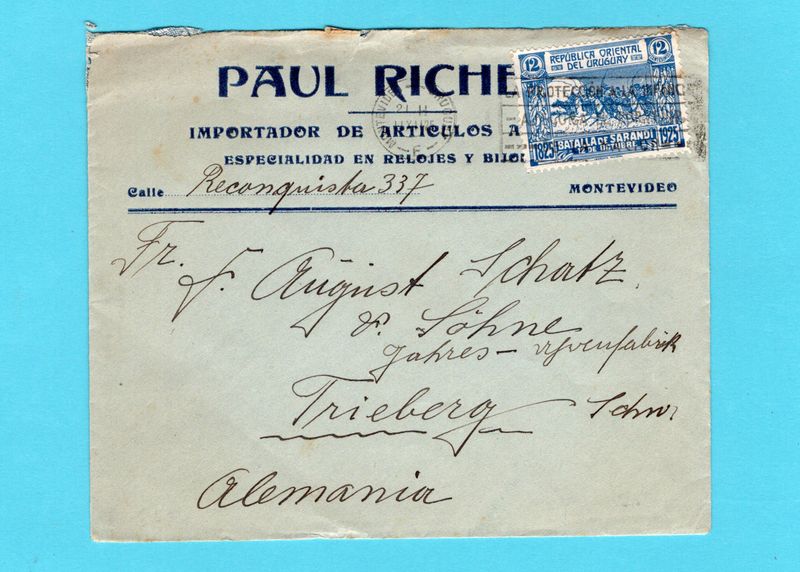 PAUL RICHE
IMPORTADOR DE ARTICULOS A
ESPECIALIDAD EN RELOJES Y BIJOU
Calle Reconquista 337 MONTEVIDEO
12 12
REPÚBLICA ORIENTAL
DEL URUGUAY
BATALLA DE SARANDÍ
1825 12 DE OCTUBRE 1925
PROTECCION A LA
MONTEVIDEO
Fr. J. August Schatz
& Söhne
Jahres- uhrenfabrik
Trieberg Schw
Alemania